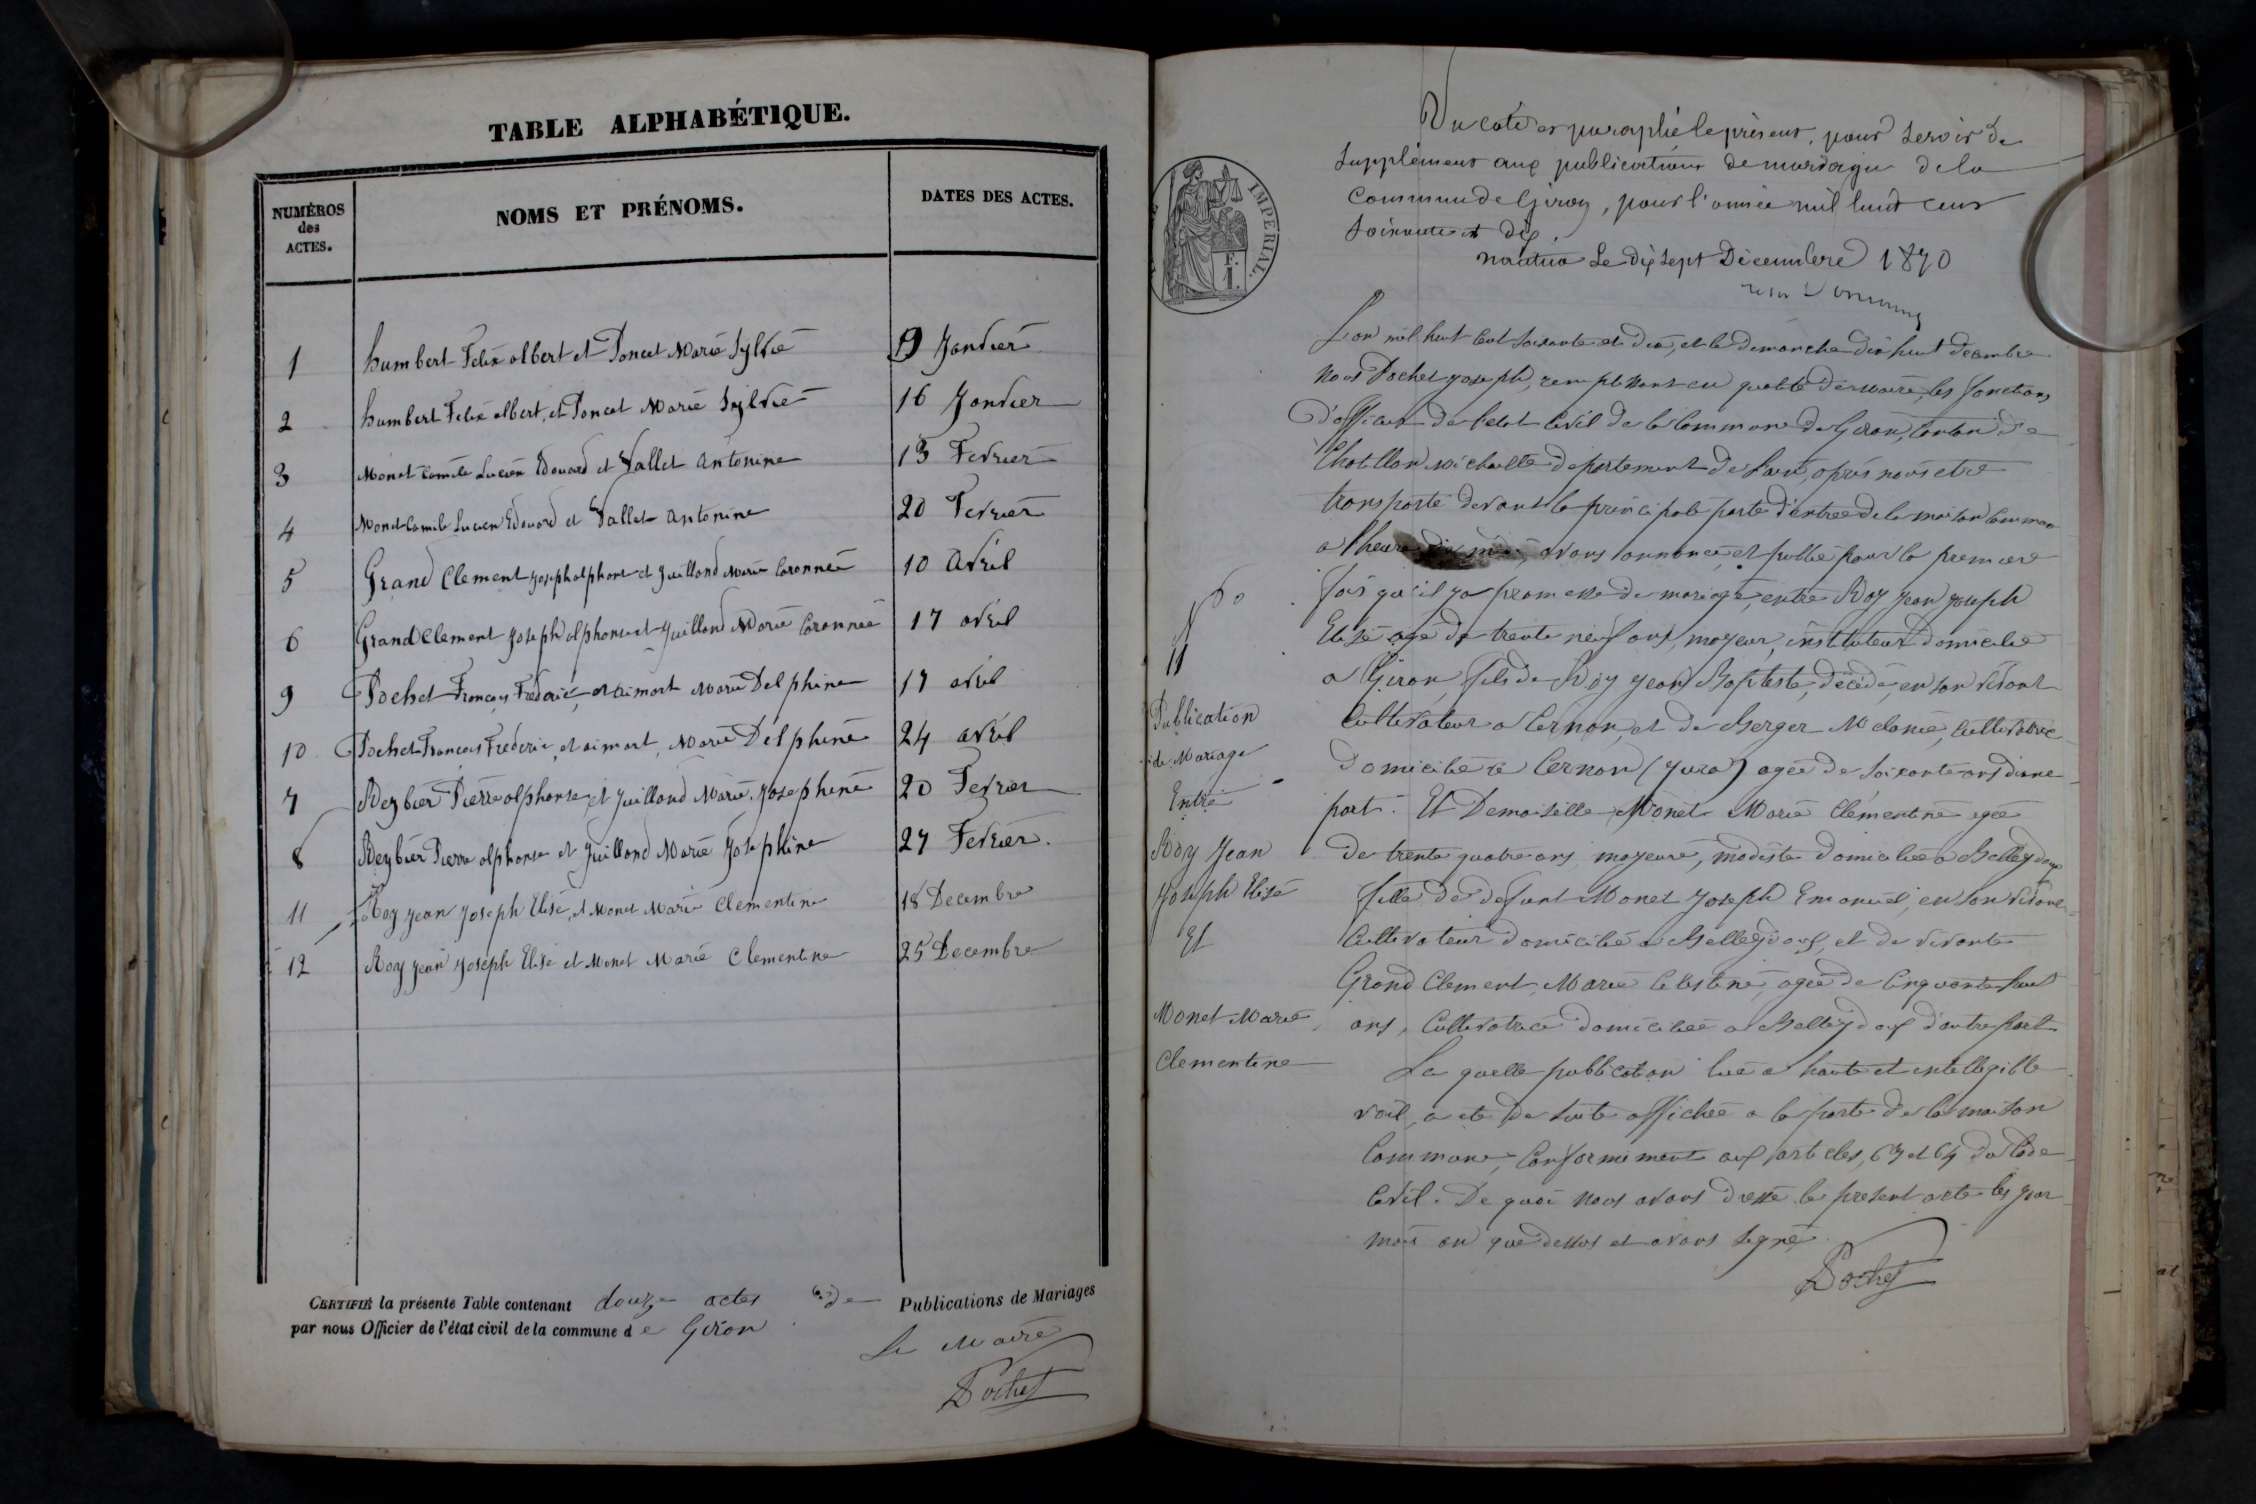 TABLE ALPHABÉTIQUE.
NUMÉROS des ACTES.
NOMS ET PRÉNOMS.
DATES DES ACTES.
1 humbert Felix albert et Poncet Marie Sylvie 9 Janvier
2 humbert Felix albert, et Poncet Marie Sylvie 16 Janvier
3 Monet Camile Lucien Edouard et Vallet Antonine 13 Fevrier
4 Monet Camile Lucien Edouard et Vallet Antonine 20 Fevrier
5 Grand Clement Joseph alphonse et Juilland Marie Coronnée 10 Avril
6 Grand Clement Joseph alphonse et Juilland Marie Coronnée 17 avril
9 Pochet François Frederic, et aimort Marie Delphine 17 avril
10 Pochet François Frederic, et aimort, Marie Delphine 24 avril
7 Reybier Pierre alphonse, et Juilland Marie Josephine 20 Fevrier
8 Reybier Pierre alphonse et Juilland Marie Josephine 27 Fevrier.
11 Roy Jean Joseph Elisé, et Monet Marie Clementine 18 Decembre
12 Roy Jean Joseph Elisé et Monet Marie Clementine 25 Decembre
CERTIFIÉ la présente Table contenant douze actes de Publications de Mariages
par nous Officier de l'état civil de la commune de Giron
Le Maire
Pochet
IMPERIAL.
F.
1.
Vu coté et paraphé le présent, pour servir de
supplément aux publications de mariage de la
Commune de Giron, pour l'année mil huit cent
soixante et dix.
nantua Le dix sept Décembre 1870
L'an mil huit cent soixante et dix, et le dimanche dix huit decembre
nous Pochet Joseph, remplissant en qualité de maire, les fonctions
d'officier de l'etat Civil de la Commune de Giron, Canton de
Chatillon Michaille departement de l'ain, après nous etre
transporté devant la principale porte d'entrée de la maison Commune
a l'heure de midi, avons annoncé et publié pour la premiere
fois qu'il y a promesse de mariage, entre Roy Jean Joseph
Elisé agé de trente neuf ans, majeur, instituteur domicilié
a Giron, fils de Roy Jean Baptiste, décédé, en son vivant
Cultivateur a Cernon, et de Berger Melanie, Cultivatrice
domiciliée a Cernon (Jura) agée de soixante ans d'une
part. Et Demoiselle Monet Marie Clémentine agée
de trente quatre ans, majeure, modiste domiciliée a Belleydoux
fille de defunt Monet Joseph Emanuel, en son vivant
Cultivateur domicilié a Belleydoux, et de vivante
Grand Clement, Marie Celestine, agée de Cinquante huit
ans, Cultivatrice domiciliée a Belleydoux d'autre part
La quelle publication lue a haute et intelligible
voix, a eté de suite affichée a la porte de la maison
Commune, Conformement aux articles, 63 et 64 du Code
Civil. De quoi nous avons dressé le present acte les jour
mois an que dessus et avons signé
Pochet
No
11
Publication
de Mariage
Entre
Roy Jean
Joseph Elisé
Et
Monet Marie
Clementine